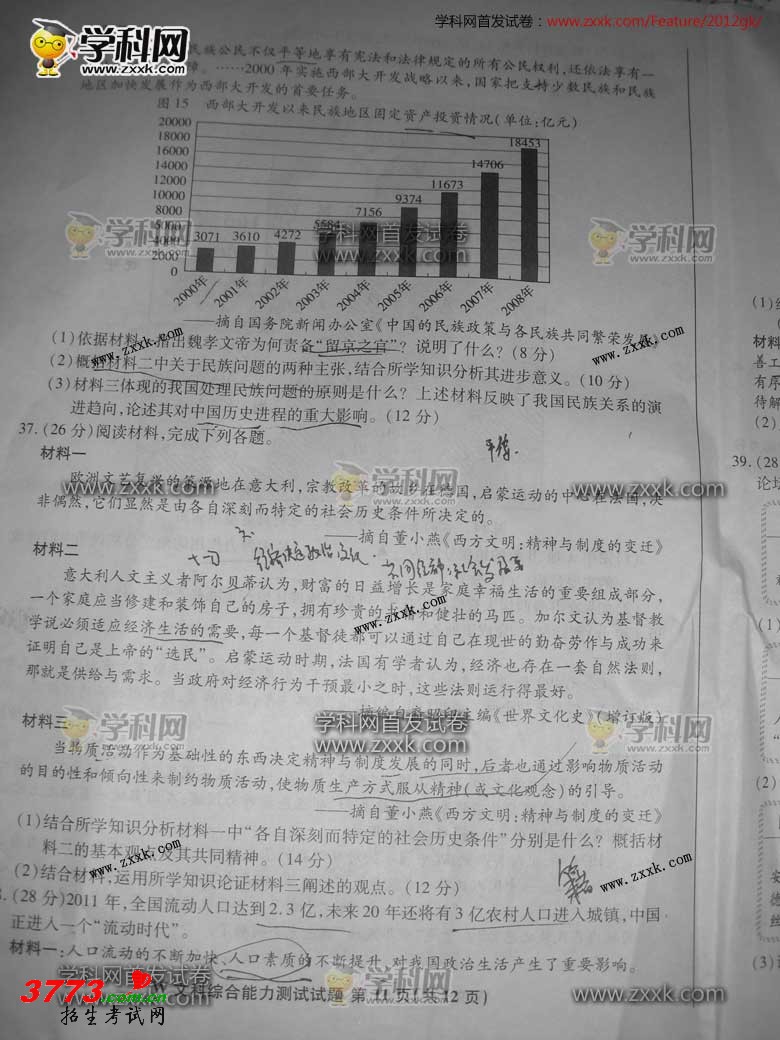 学科网首发试卷：www.zxxk.com/Feature/2012gk/
学科网
www.zxxk.com
民族公民不仅平等地享有宪法和法律规定的所有公民权利,还依法享有一
障。……2000年实施西部大开发战略以来,国家把支持少数民族和民族
地区加快发展作为西部大开发的首要任务。
图15 西部大开发以来民族地区固定资产投资情况(单位:亿元)
20000
18000
16000
14000
12000
10000
8000
6000
4000
2000
0
3071 3610 4272 5584 7156 9374 11673 14706 18453
2000年 2001年 2002年 2003年 2004年 2005年 2006年 2007年 2008年
学科网 www.zxxk.com
学科网首发试卷 www.zxxk.com
学科网 www.zxxk.com
——摘自国务院新闻办公室《中国的民族政策与各民族共同繁荣发展》
(1)依据材料一,指出魏孝文帝为何责备“留京之官”? 说明了什么? (8分)
(2)概括材料二中关于民族问题的两种主张,结合所学知识分析其进步意义。(10分)
(3)材料三体现的我国处理民族问题的原则是什么? 上述材料反映了我国民族关系的演
进趋向,论述其对中国历史进程的重大影响。(12分)
www.zxxk.com
www.zxxk.com
37.(26分)阅读材料,完成下列各题。
材料一
欧洲文艺复兴的策源地在意大利,宗教改革的故乡在德国,启蒙运动的中心在法国,决
非偶然,它们显然是由各自深刻而特定的社会历史条件所决定的。
——摘自董小燕《西方文明:精神与制度的变迁》
学科网首发试卷 www.zxxk.com
学科网 www.zxxk.com
学科网首发试卷 www.zxxk.com
材料二
意大利人文主义者阿尔贝蒂认为,财富的日益增长是家庭幸福生活的重要组成部分,
一个家庭应当修建和装饰自己的房子,拥有珍贵的书籍和健壮的马匹。加尔文认为基督教
学说必须适应经济生活的需要,每一个基督徒都可以通过自己在现世的勤奋劳作与成功来
证明自己是上帝的“选民”。启蒙运动时期,法国有学者认为,经济也存在一套自然法则,
那就是供给与需求。当政府对经济行为干预最小之时,这些法则运行得最好。
主编《世界文化史》(增订版)
www.zxxk.com
www.zxxk.com
学科网 www.zxxk.com
学科网首发试卷 www.zxxk.com
学科网 www.zxxk.com
材料三
当物质活动作为基础性的东西决定精神与制度发展的同时,后者也通过影响物质活动
的目的性和倾向性来制约物质活动,使物质生产方式服从精神(或文化观念)的引导。
——摘自董小燕《西方文明:精神与制度的变迁》
(1)结合所学知识分析材料一中“各自深刻而特定的社会历史条件”分别是什么? 概括材
料二的基本观点及其共同精神。(14分)
(2)结合材料,运用所学知识论证材料三阐述的观点。(12分)
www.zxxk.com
www.zxxk.com
.(28分)2011年,全国流动人口达到2.3亿,未来20年还将有3亿农村人口进入城镇,中国
正进入一个“流动时代”。
材料一:人口流动的不断加快、人口素质的不断提升,对我国政治生活产生了重要影响。
文科综合能力测试试题 第11页(共12页)
学科网首发试卷 www.zxxk.com
学科网 www.zxxk.com
学科网首发试卷 www.zxxk.com
3773.com.cn
招生考试网
(1)
材料
善工
有序
待解
(2)
39.(28
论坛
(1)
(2)
(3)